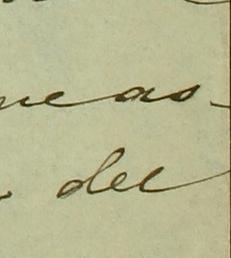 ne as-
del